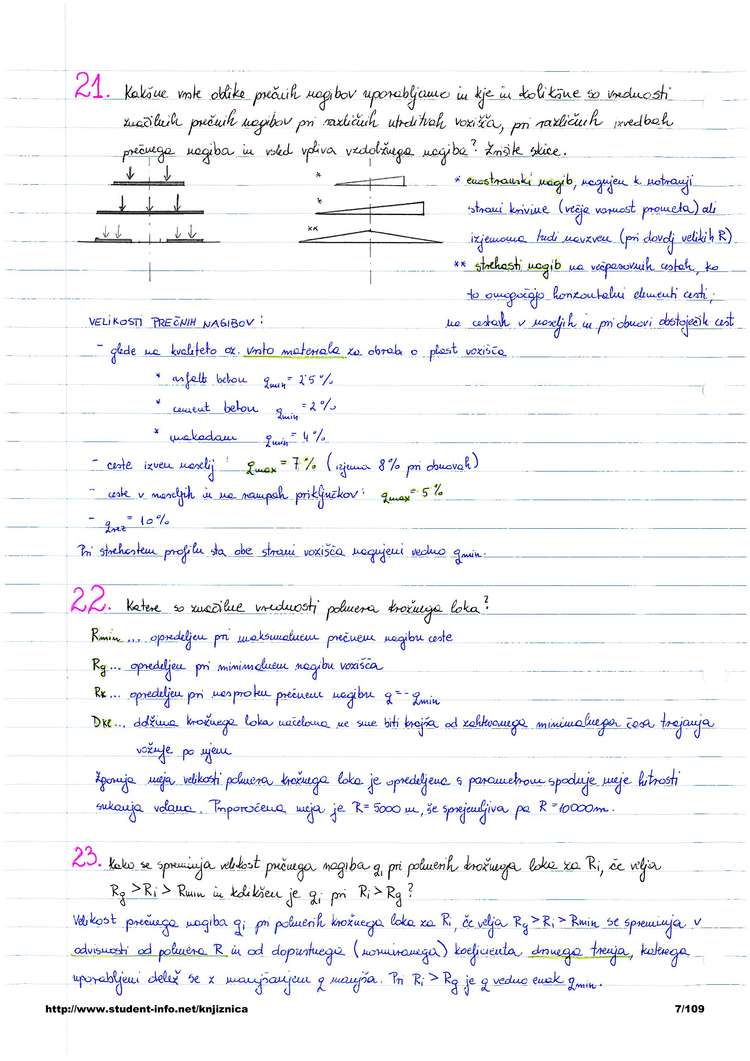 21. Kakšne vrste oblike prečnih nagibov uporabljamo in kje in kolikšne so vrednosti
značilnih prečnih nagibov pri različnih utrditvah vozišča, pri različnih izvedbah
prečnega nagiba in vsled vpliva vzdolžnega nagiba? Znište skice.
*
*
**
* enostranski nagib, nagnjen k notranji
strani krivine (večja varnost prometa) ali
izjemoma tudi navzven (pri dovolj velikih R)
** strehasti nagib na večpasovnih cestah, ko
to omogočajo horizontalni elementi cesti;
na cestah v naseljih in pri obnovi obstoječih cest
VELIKOSTI PREČNIH NAGIBOV:
- glede na kvaliteto oz. vrsto materiala za obrabno plast vozišča
* asfalt beton qmin = 2'5 %
* cement beton qmin = 2 %
* makadam qmin = 4 %
- ceste izven naselij: qmax = 7 % (izjema 8 % pri obnovah)
- ceste v naseljih in na rampah priključkov: qmax = 5 %
- qrez = 10 %
Pri strehastem profilu sta obe strani vozišča nagnjeni vedno qmin.
22. Katere so značilne vrednosti polmera krožnega loka?
Rmin ... opredeljen pri maksimalnem prečnem nagibu ceste
Rg ... opredeljen pri minimalnem nagibu vozišča
Rk ... opredeljen pri nasprotnem prečnem nagibu q = - qmin
DKL ... dolžina krožnega loka načeloma ne sme biti krajša od zahtevanega minimalnega časa trajanja
vožnje po njem
Zgornja meja velikosti polmera krožnega loka je opredeljena s parametrom spodnje meje hitrosti
sukanja volana. Priporočena meja je R = 5000 m, še sprejemljiva pa R = 10000 m.
23. Kako se spreminja velikost prečnega nagiba qi pri polmerih krožnega loka za Ri, če velja
Rg > Ri > Rmin in kolikšen je qi pri Ri > Rg?
Velikost prečnega nagiba qi pri polmerih krožnega loka za Ri, če velja Rg > Ri > Rmin se spreminja v
odvisnosti od polmera R in od dopustnega (normiranega) koeficienta drsnega trenja, katerega
uporabljeni delež se z manjšanjem q manjša. Pri Ri > Rg je q vedno enak qmin.
http://www.student-info.net/knjiznica 7/109